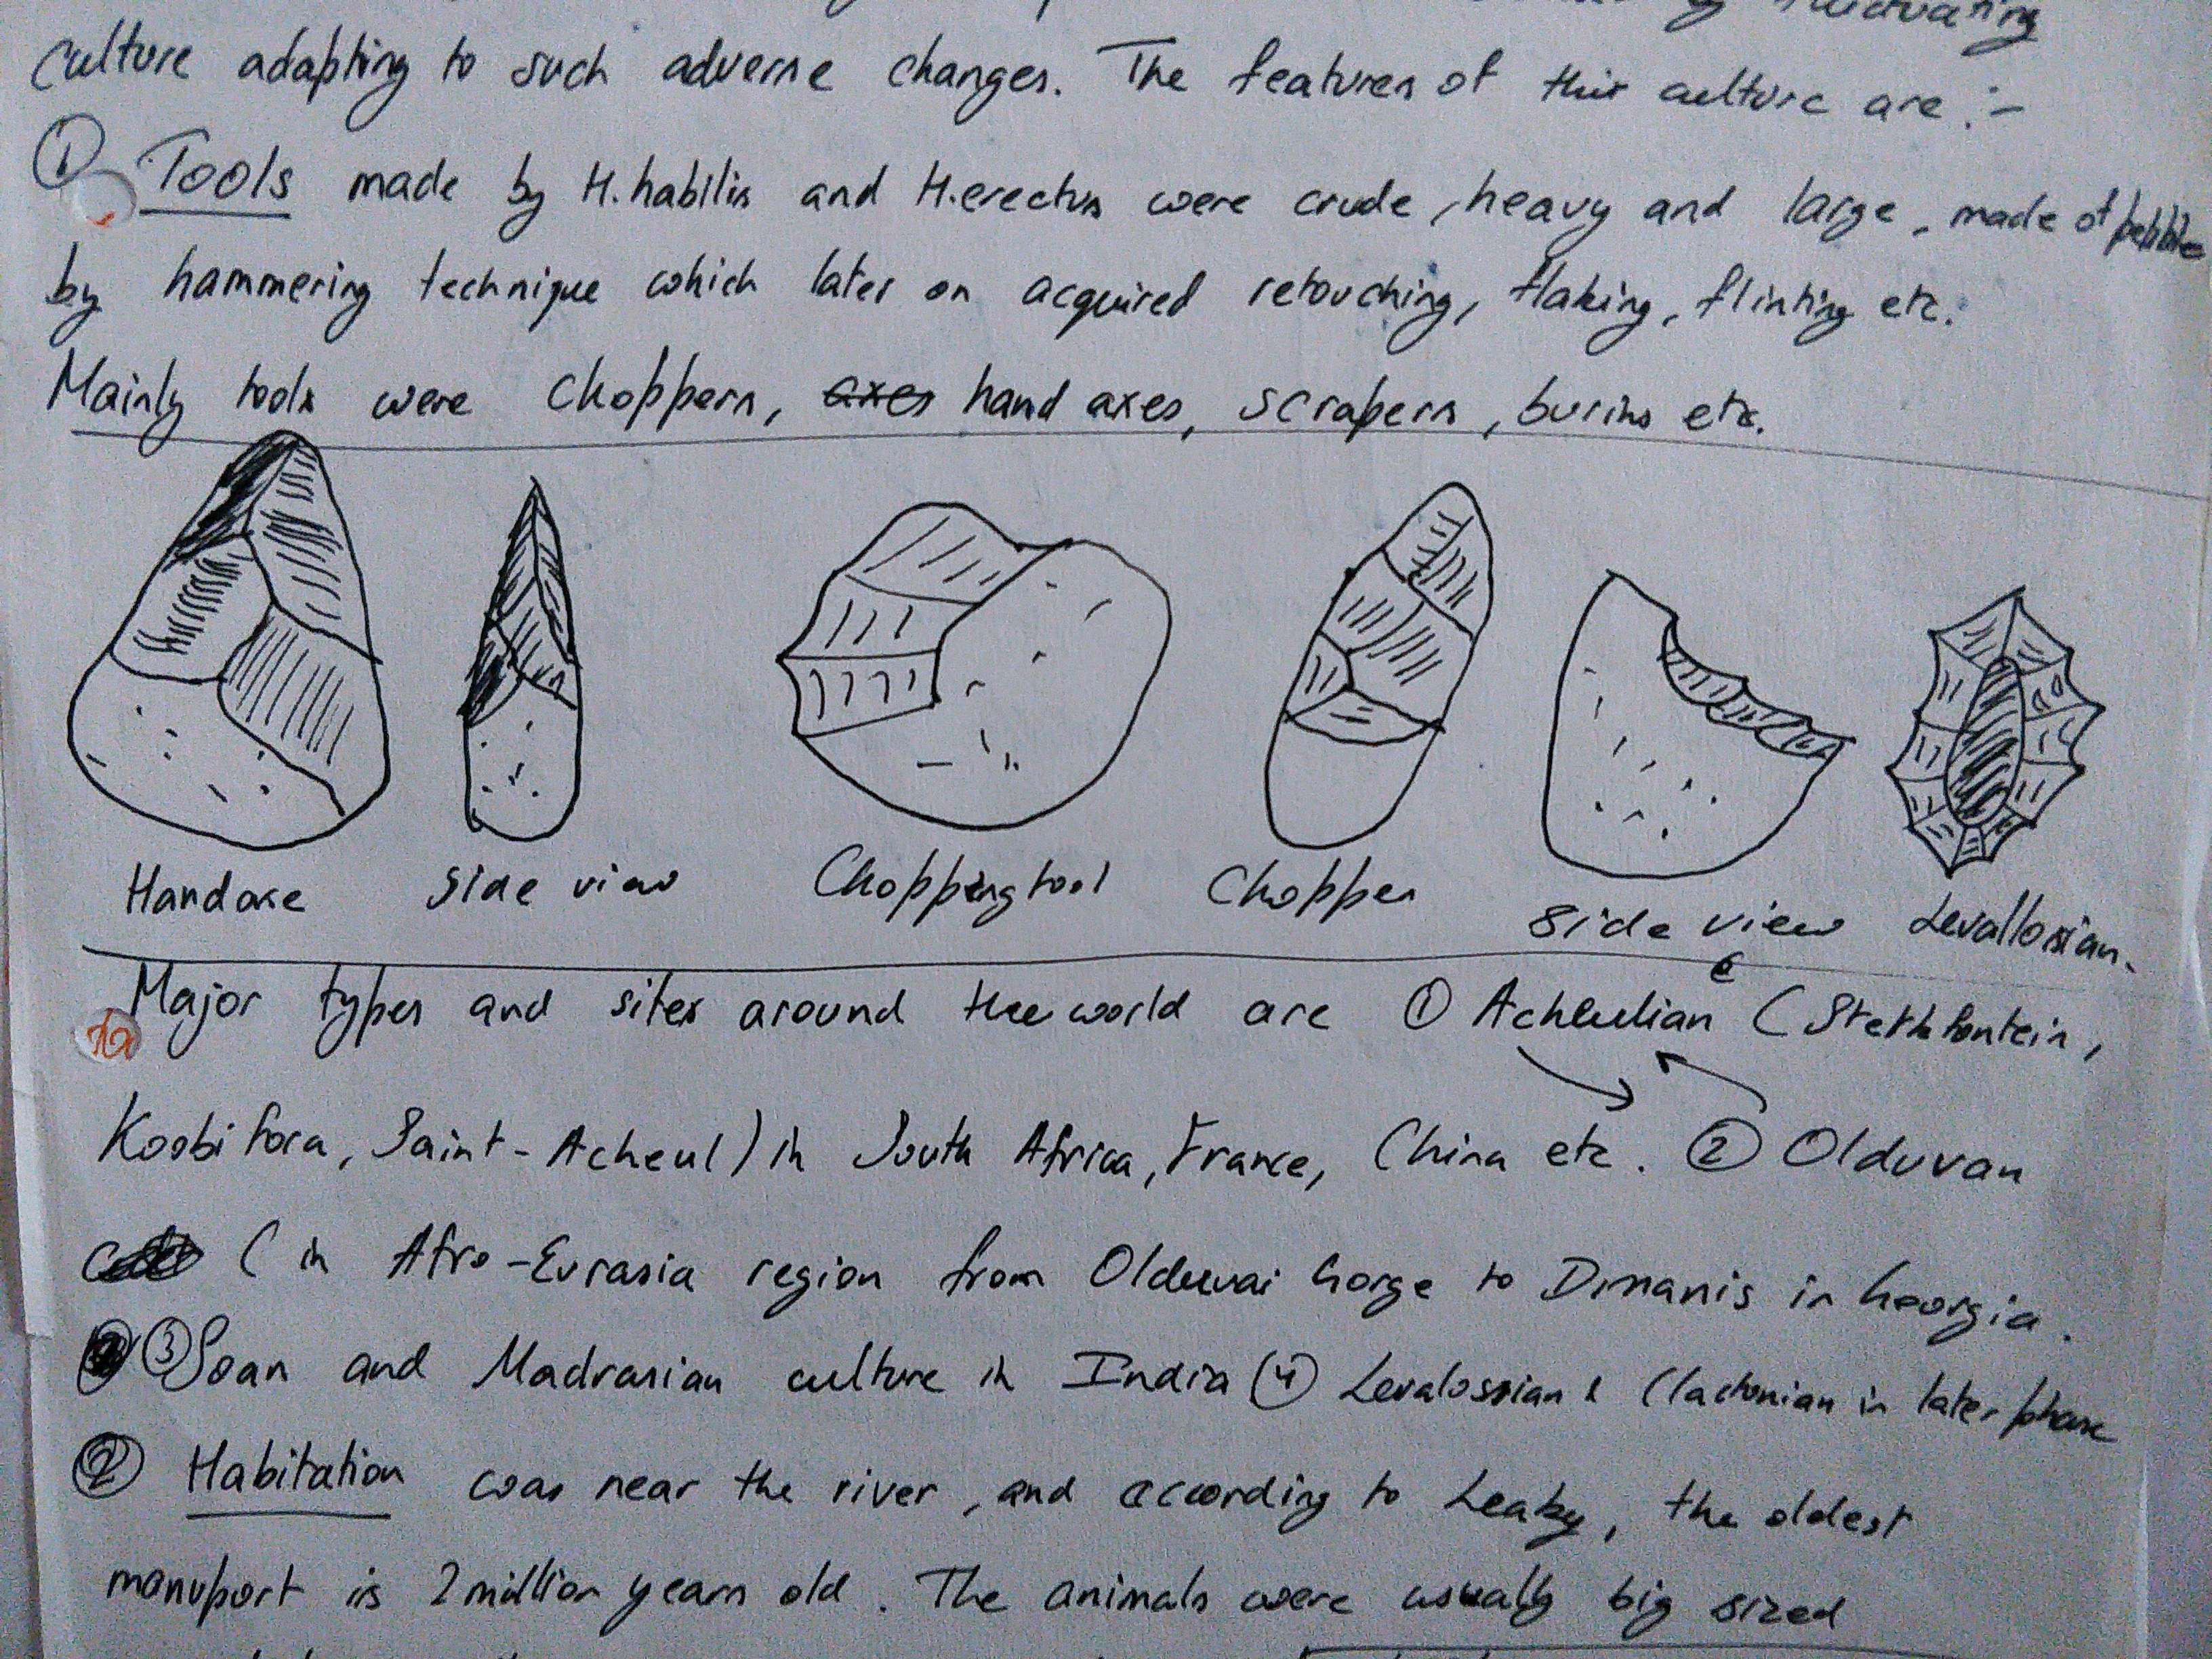 fluctuating
culture adapting to such adverse changes. The features of this culture are :-
① Tools made by H.habilis and H.erectus were crude, heavy and large, made of pebble
by hammering technique which later on acquired retouching, flaking, flinting etc.
Mainly tools were choppers, axes hand axes, scrapers, burins etc.
Handaxe side view Chopping tool Chopper side view Levallosian.
Major types and sites around the world are ① Acheulian e (Sterkfontein,
Koobi fora, Saint-Acheul) in South Africa, France, China etc. ② Olduvan
(in Afro-Eurasia region from Olduvai Gorge to Dmanis in Georgia.
③ Soan and Madrasian culture in India ④ Levalossian & Clactonian in later phase
② Habitation was near the river, and according to Leaky, the oldest
manuport is 2 million years old. The animals were usually big sized